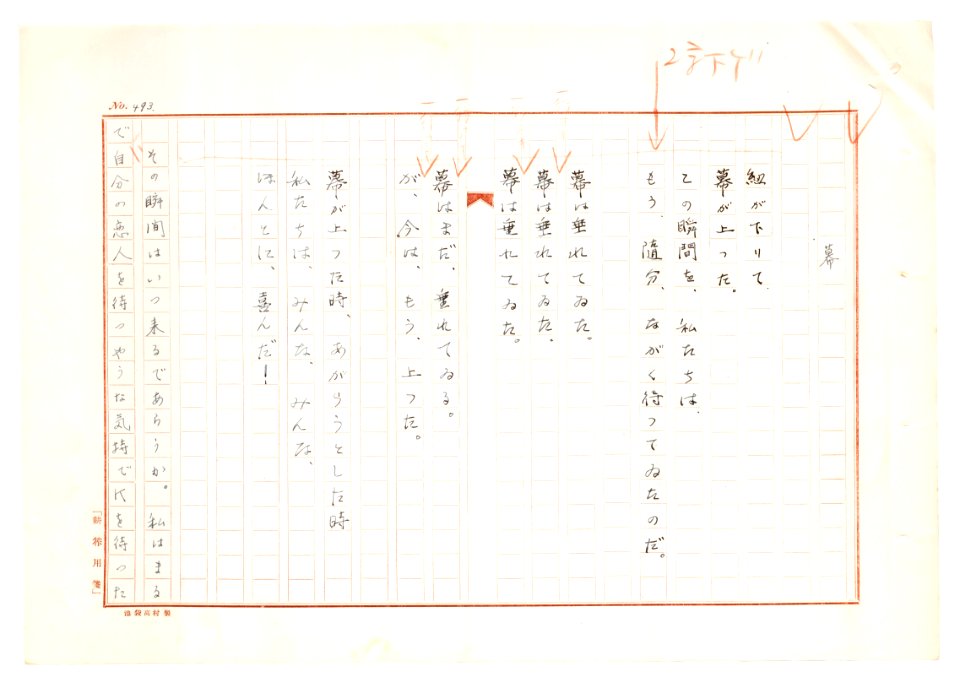 2字下ゲ
No. 493.
幕
紐が下りて、
幕が上つた。
この瞬間を、私たちは、
もう、随分、ながく待つてゐたのだ。
幕は垂れてゐた。
幕は垂れてゐた、
幕は垂れてゐた。
幕はまだ、垂れてゐる。
が、今は、もう、上つた。
幕が上つた時、あがらうとした時
私たちは、みんな、みんな、
ほんとに、喜んだ!
その瞬間はいつ来るであらうか。私はまる
で自分の恋人を待つやうな気持で代を待つた
池袋高村製